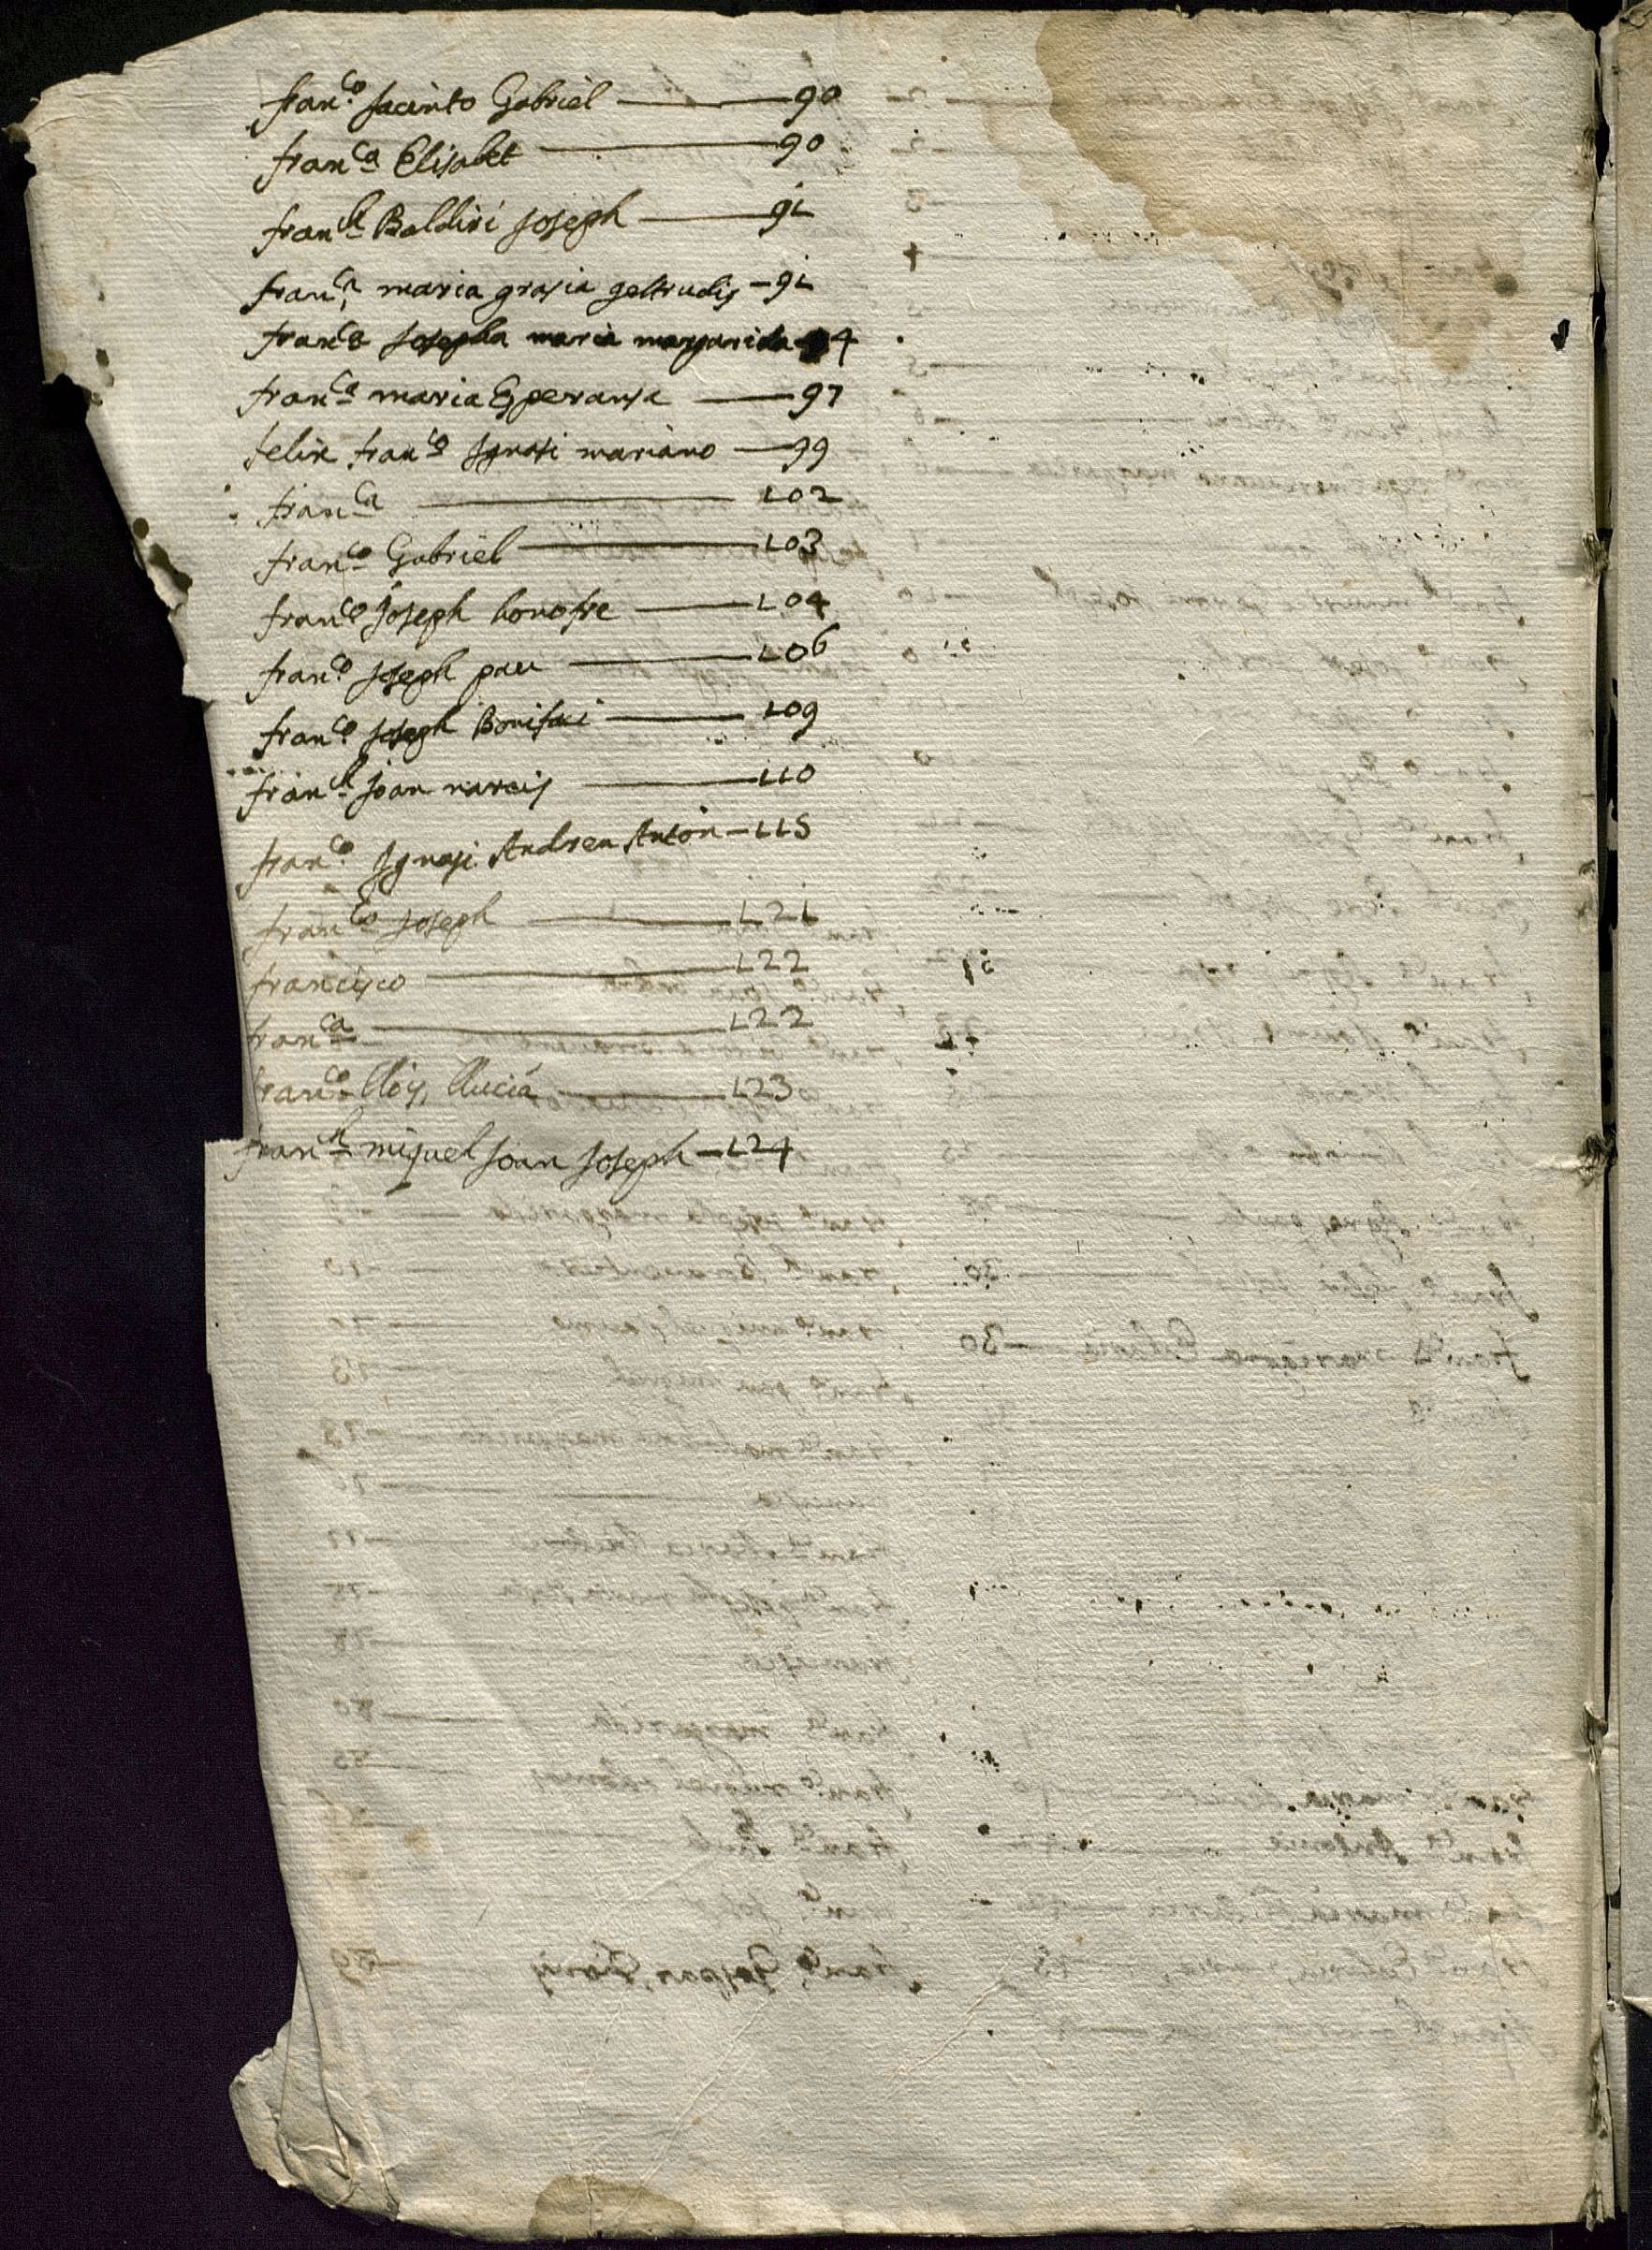 fran^co Jacinto Gabriel — 90
fran^ca Elisabet — 90
fran^ch Baldiri Joseph — 91
fran^ca maria grasia geltrudis — 91
fran^ca Josepha maria margarida 94
fran^ca maria Esperansa — 97
felix fran^co Ignasi mariano — 99
fran^ca — 102
fran^co Gabriel — 103
fran^co Joseph honofre — 104
fran^co Joseph pau — 106
fran^co Joseph Bonifaci — 109
fran^ch Joan narcis — 110
fran^co Ignasi Andreu Anton — 115
fran^co Joseph — 121
francisco — 122
fran^ca — 122
fran^co lloys, llucia — 123
fran^ch miquel Joan Joseph — 124